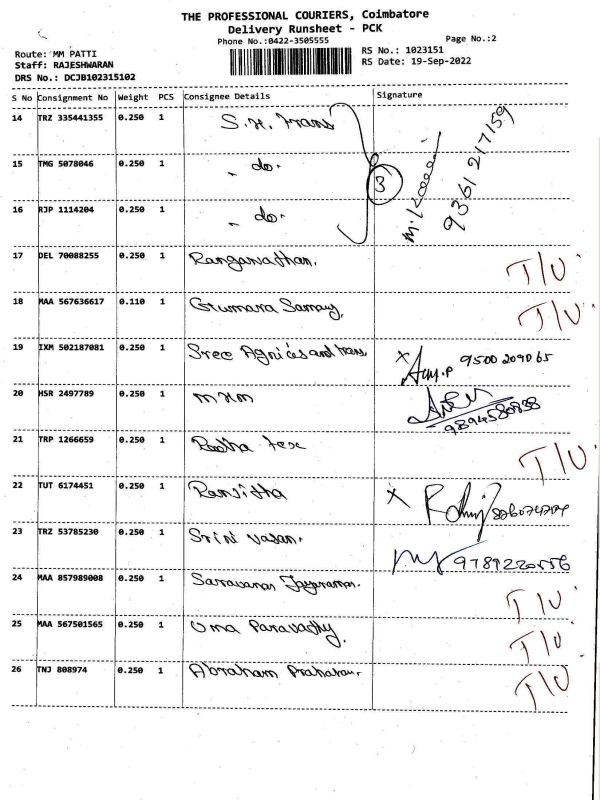 THE PROFESSIONAL COURIERS, Coimbatore
Delivery Runsheet - PCK
Phone No.:0422-3505555
Page No.:2
Route: MM PATTI
RS No.: 1023151
Staff: RAJESHWARAN
RS Date: 19-Sep-2022
DRS No.: DCJB102315102
S No Consignment No Weight PCS Consignee Details Signature
14 TRZ 335441355 0.250 1 S.H. Trans
15 TMG 5078046 0.250 1 - do -
3
9361217159
16 RJP 1114204 0.250 1 - do -
17 DEL 70088255 0.250 1 Ranganathan. T/U
18 MAA 567636617 0.110 1 T/U
19 IXM 502187081 0.250 1 Sree X 9500209065
20 HSR 2497789 0.250 1 9894580838
21 TRP 1266659 0.250 1 T/U
22 TUT 6174451 0.250 1 Ranjitha X
23 TRZ 53785230 0.250 1 Srini vasan.
24 MAA 857989008 0.250 1 Saravanan Jayaraman. T/U
25 MAA 567501565 0.250 1 Uma Paravathy. T/U
26 TNJ 808974 0.250 1 Abraham T/U